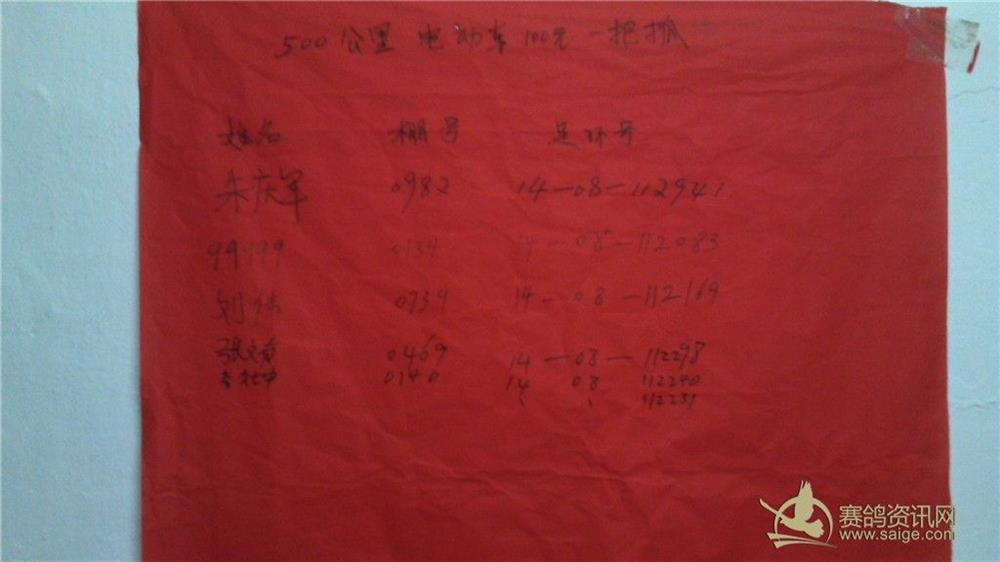 500公里 电动车 100元 一把抓
姓名 棚号 足环号
朱庆军 0982 14-08-112941
99.199 0134 14-08-112083
刘伟 0739 14-08-112169
张文 0469 14-08-112298
0140 14 08 112240
112251
赛鸽资讯网
www.saige.com